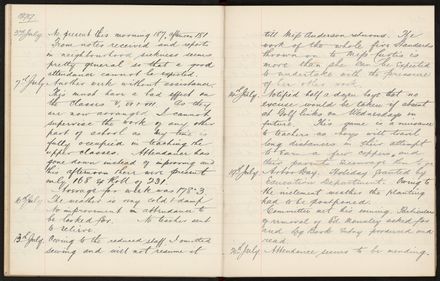 1897.
3rd July. No present this morning 187, afternoon 181
From notes received and reports
in neighbourhood sickness seems
pretty general so that a good
attendance cannot be expected.
7th July. Another week without assistance.
This must have a bad effect on
the classes V, VI & VII. As they
are now arranged I cannot
supervise the work of any other
part of school as my time is
fully occupied in teaching the
upper classes. Attendance has
gone down instead of improving and
this afternoon there were present
only 168. Roll of 231.
Average for week was 178.3.
July. The weather is very cold & damp
so improvement in attendance to
be looked for. No teacher sent
to relieve.
13th July. Owing to the reduced staff I omitted
sewing and will not resume it
till Miss Anderson returns. The
work of the whole five standards
thrown on to Miss Curtis is
more than she can be expected
to undertake with the pressure
of her other work.
July. Notified half a dozen boys that no
excuse would be taken if absent
at Golf Links on Wednesdays in
future. This game is a nuisance
to teachers as boys will travel
long distances in their attempt
to earn a few coppers and
their parents encourage them to go
July. Arbor Day. Holiday granted by
Education Department. Owing to
the inclement weather the planting
had to be postponed.
Committee met this evening. Particulars
of removal of asked for
and Log Book today produced and
read.
July. Attendance seems to be mending.